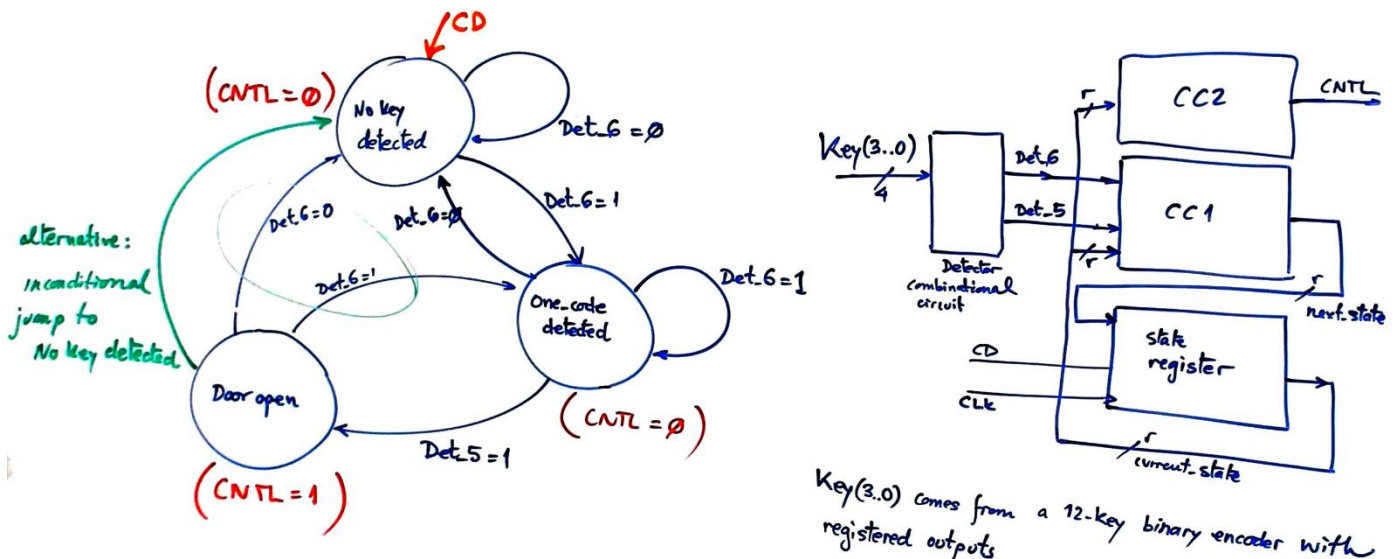 CD
(CNTL = 0)
No key
detected
Det_6 = 0
Det_6 = 1
Det_6=0
Det_6=0
alternative:
inconditional
jump to
No key detected
Det_6=1
One_code
detected
Det_6=1
Door open
(CNTL = 0)
Det_5 = 1
(CNTL = 1)
r
CC2
CNTL
Key(3..0)
4
Det_6
Det_5
CC1
r
Detector
combinational
circuit
r
next_state
state
register
CD
CLK
r
current_state
Key(3..0) comes from a 12-key binary encoder with
registered outputs